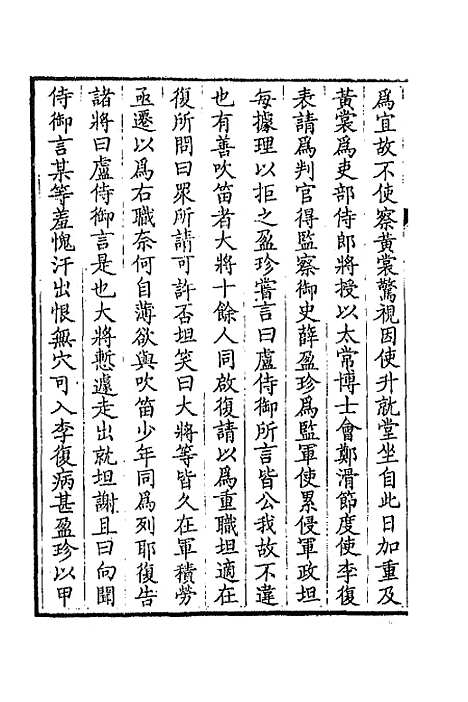 爲宜故不使察黃裳驚視因使升就堂坐自此日加重及
黃裳爲吏部侍郎將授以太常博士會鄭滑節度使李復
表請爲判官得監察御史薛盈珍爲監軍使累侵軍政坦
每據理以拒之盈珍嘗言曰盧侍御所言皆公我故不違
也有善吹笛者大將十餘人同啟復請以爲重職坦適在
復所問曰眾所請可許否坦笑曰大將等皆久在軍積勞
亟遷以爲右職奈何自薄欲與吹笛少年同爲列耶復告
諸將曰盧侍御言是也大將慙遽走出就坦謝且曰向聞
侍御言某等羞愧汗出恨無穴可入李復病甚盈珍以甲